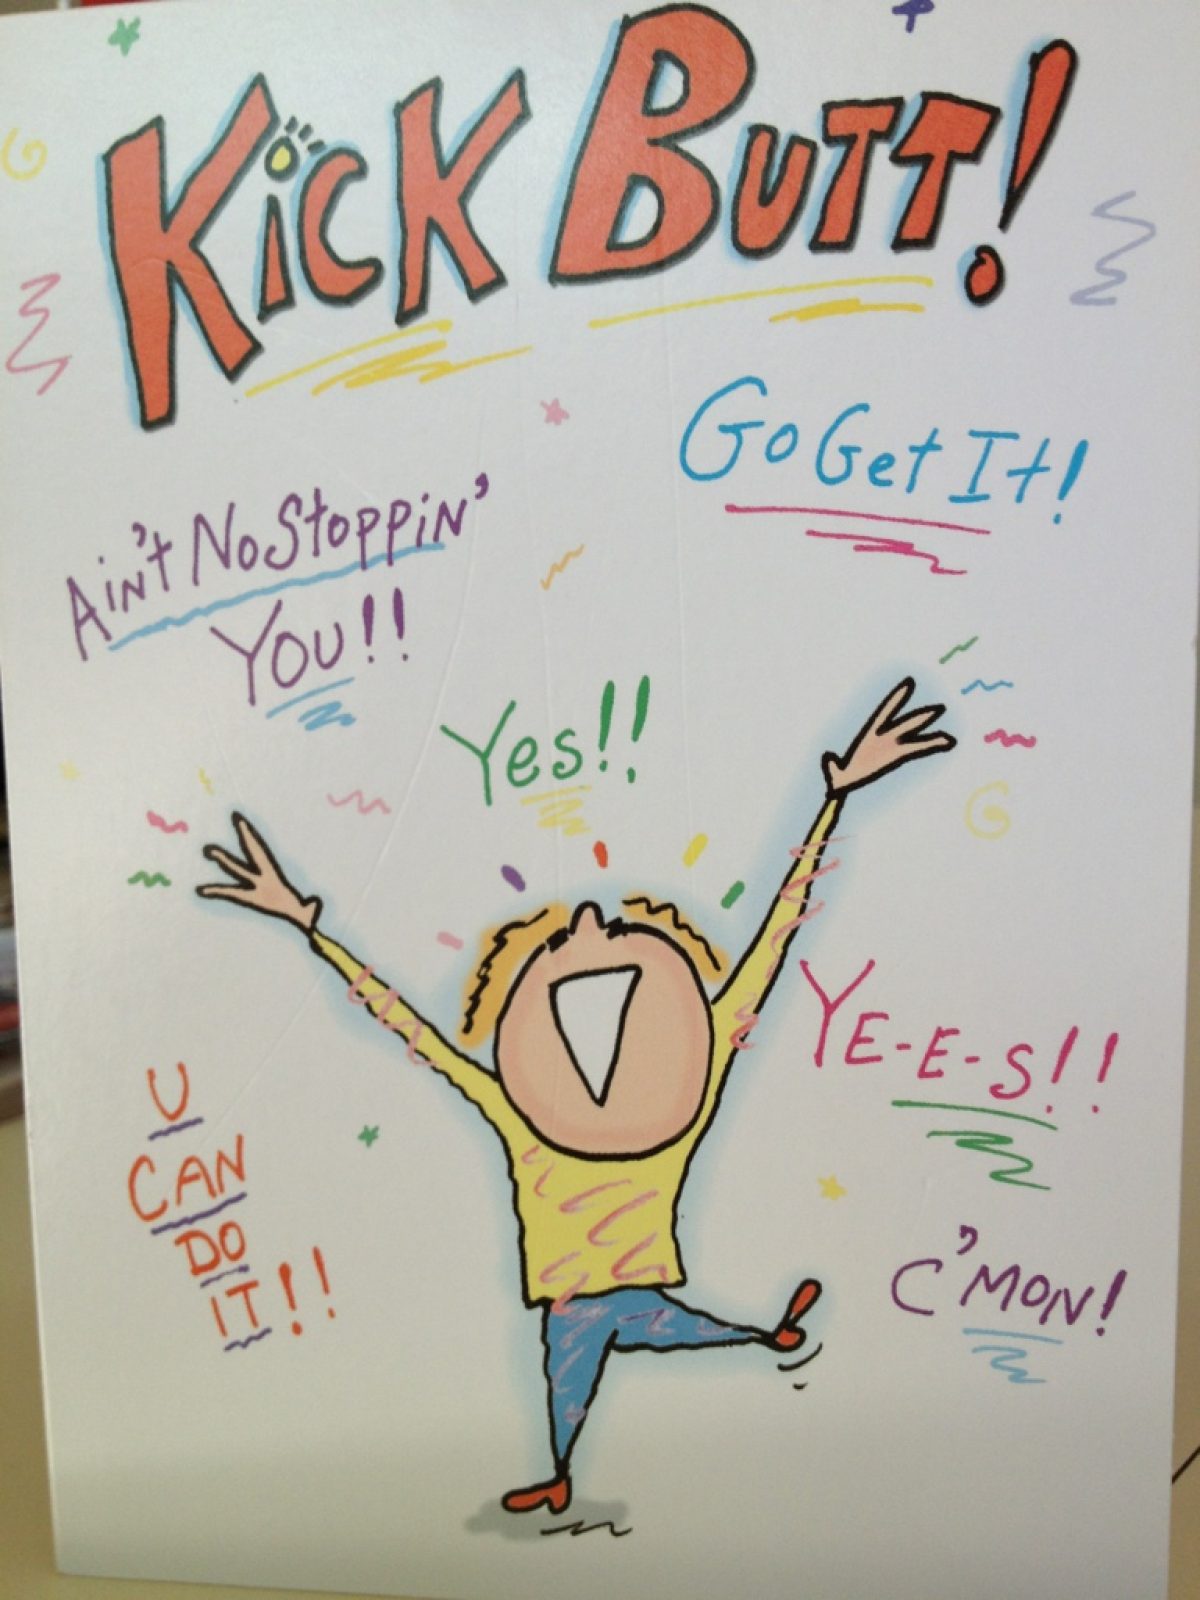 KicK BUTT!
Go Get It!
Ain't No Stoppin'
You!!
Yes!!
YE-E-S!!
U
CAN
DO
IT!!
C'MON!